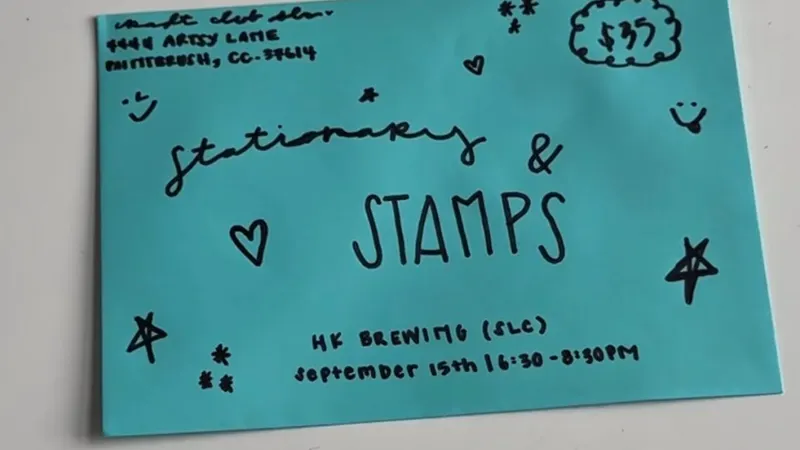 craft club slc
4444 ARTSY LANE
PAINTBRUSH, CC-37614
$35
stationary &
STAMPS
HK BREWING (SLC)
september 15th | 6:30-8:30PM